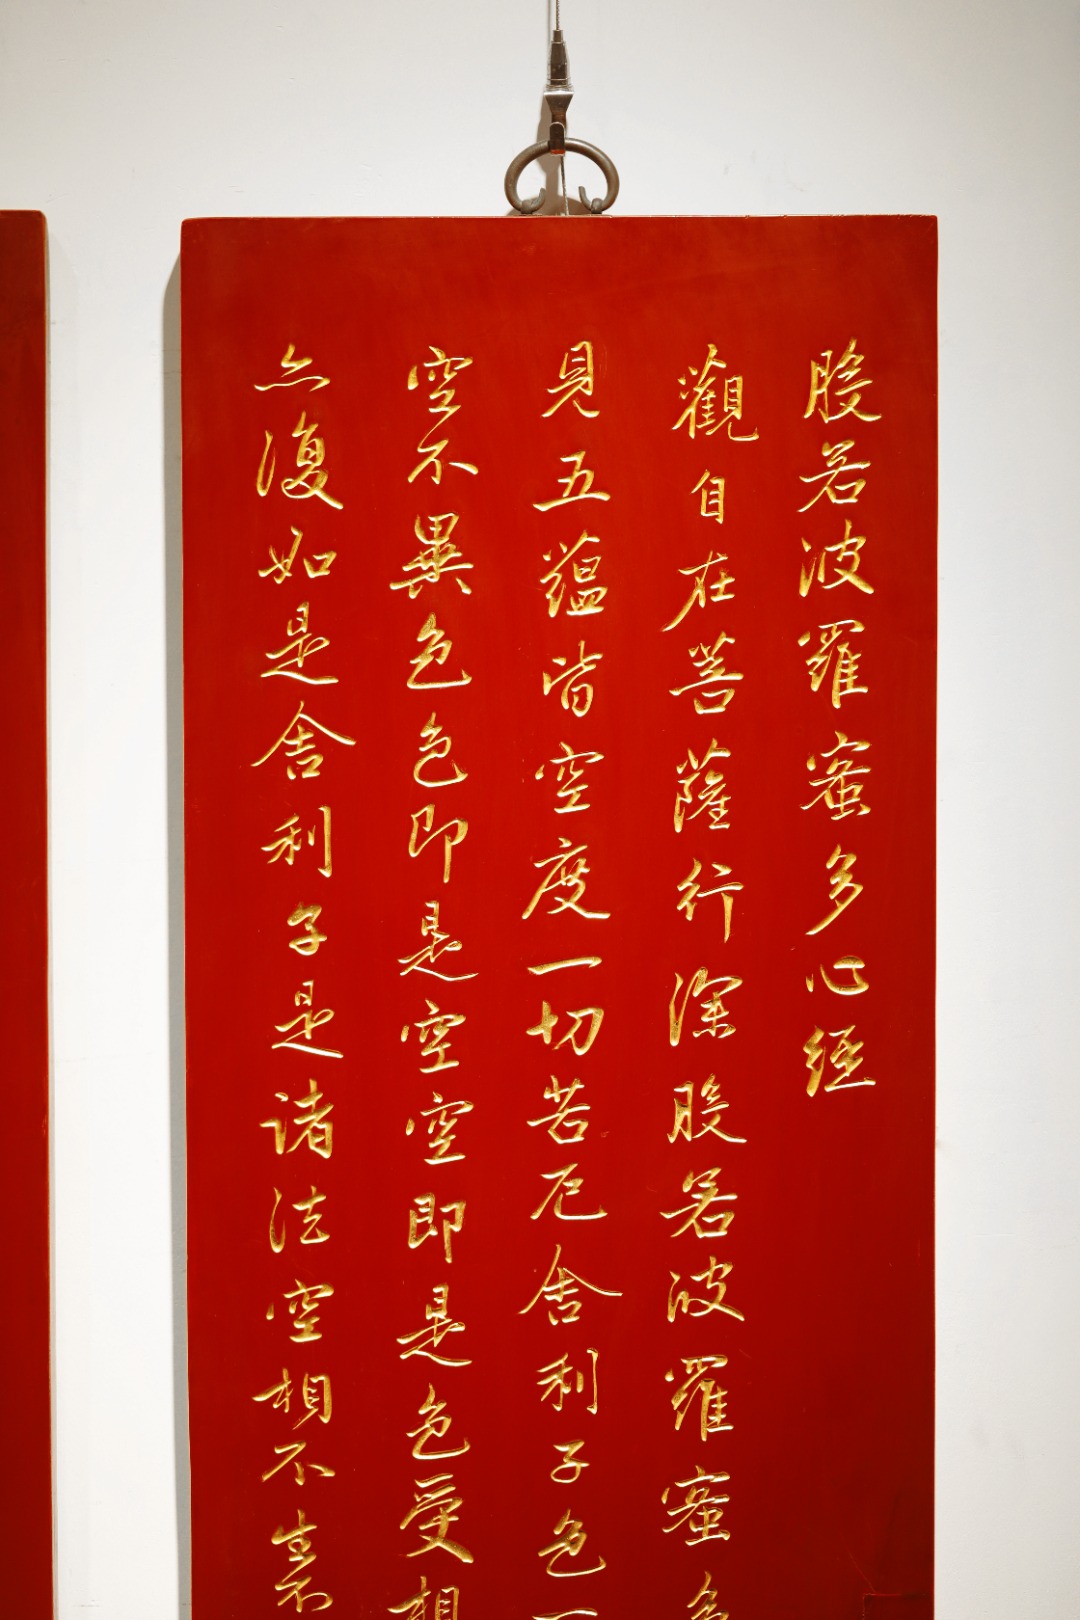 般若波羅蜜多心經
觀自在菩薩行深般若波羅蜜多
見五蘊皆空度一切苦厄舍利子色
空不異色色即是空空即是色受想
亦復如是舍利子是諸法空相不生不